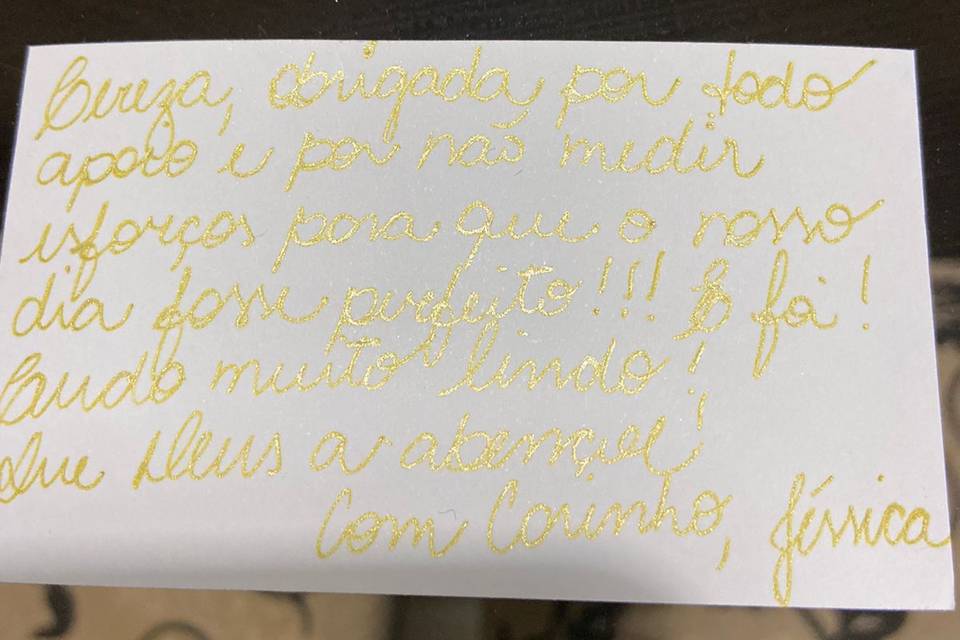 Cereza, obrigada por todo
apoio e por não medir
esforços para que o nosso
dia fosse perfeito!!! E foi!
tudo muito lindo!
Que Deus a abençoe!
Com Carinho, Jéssica